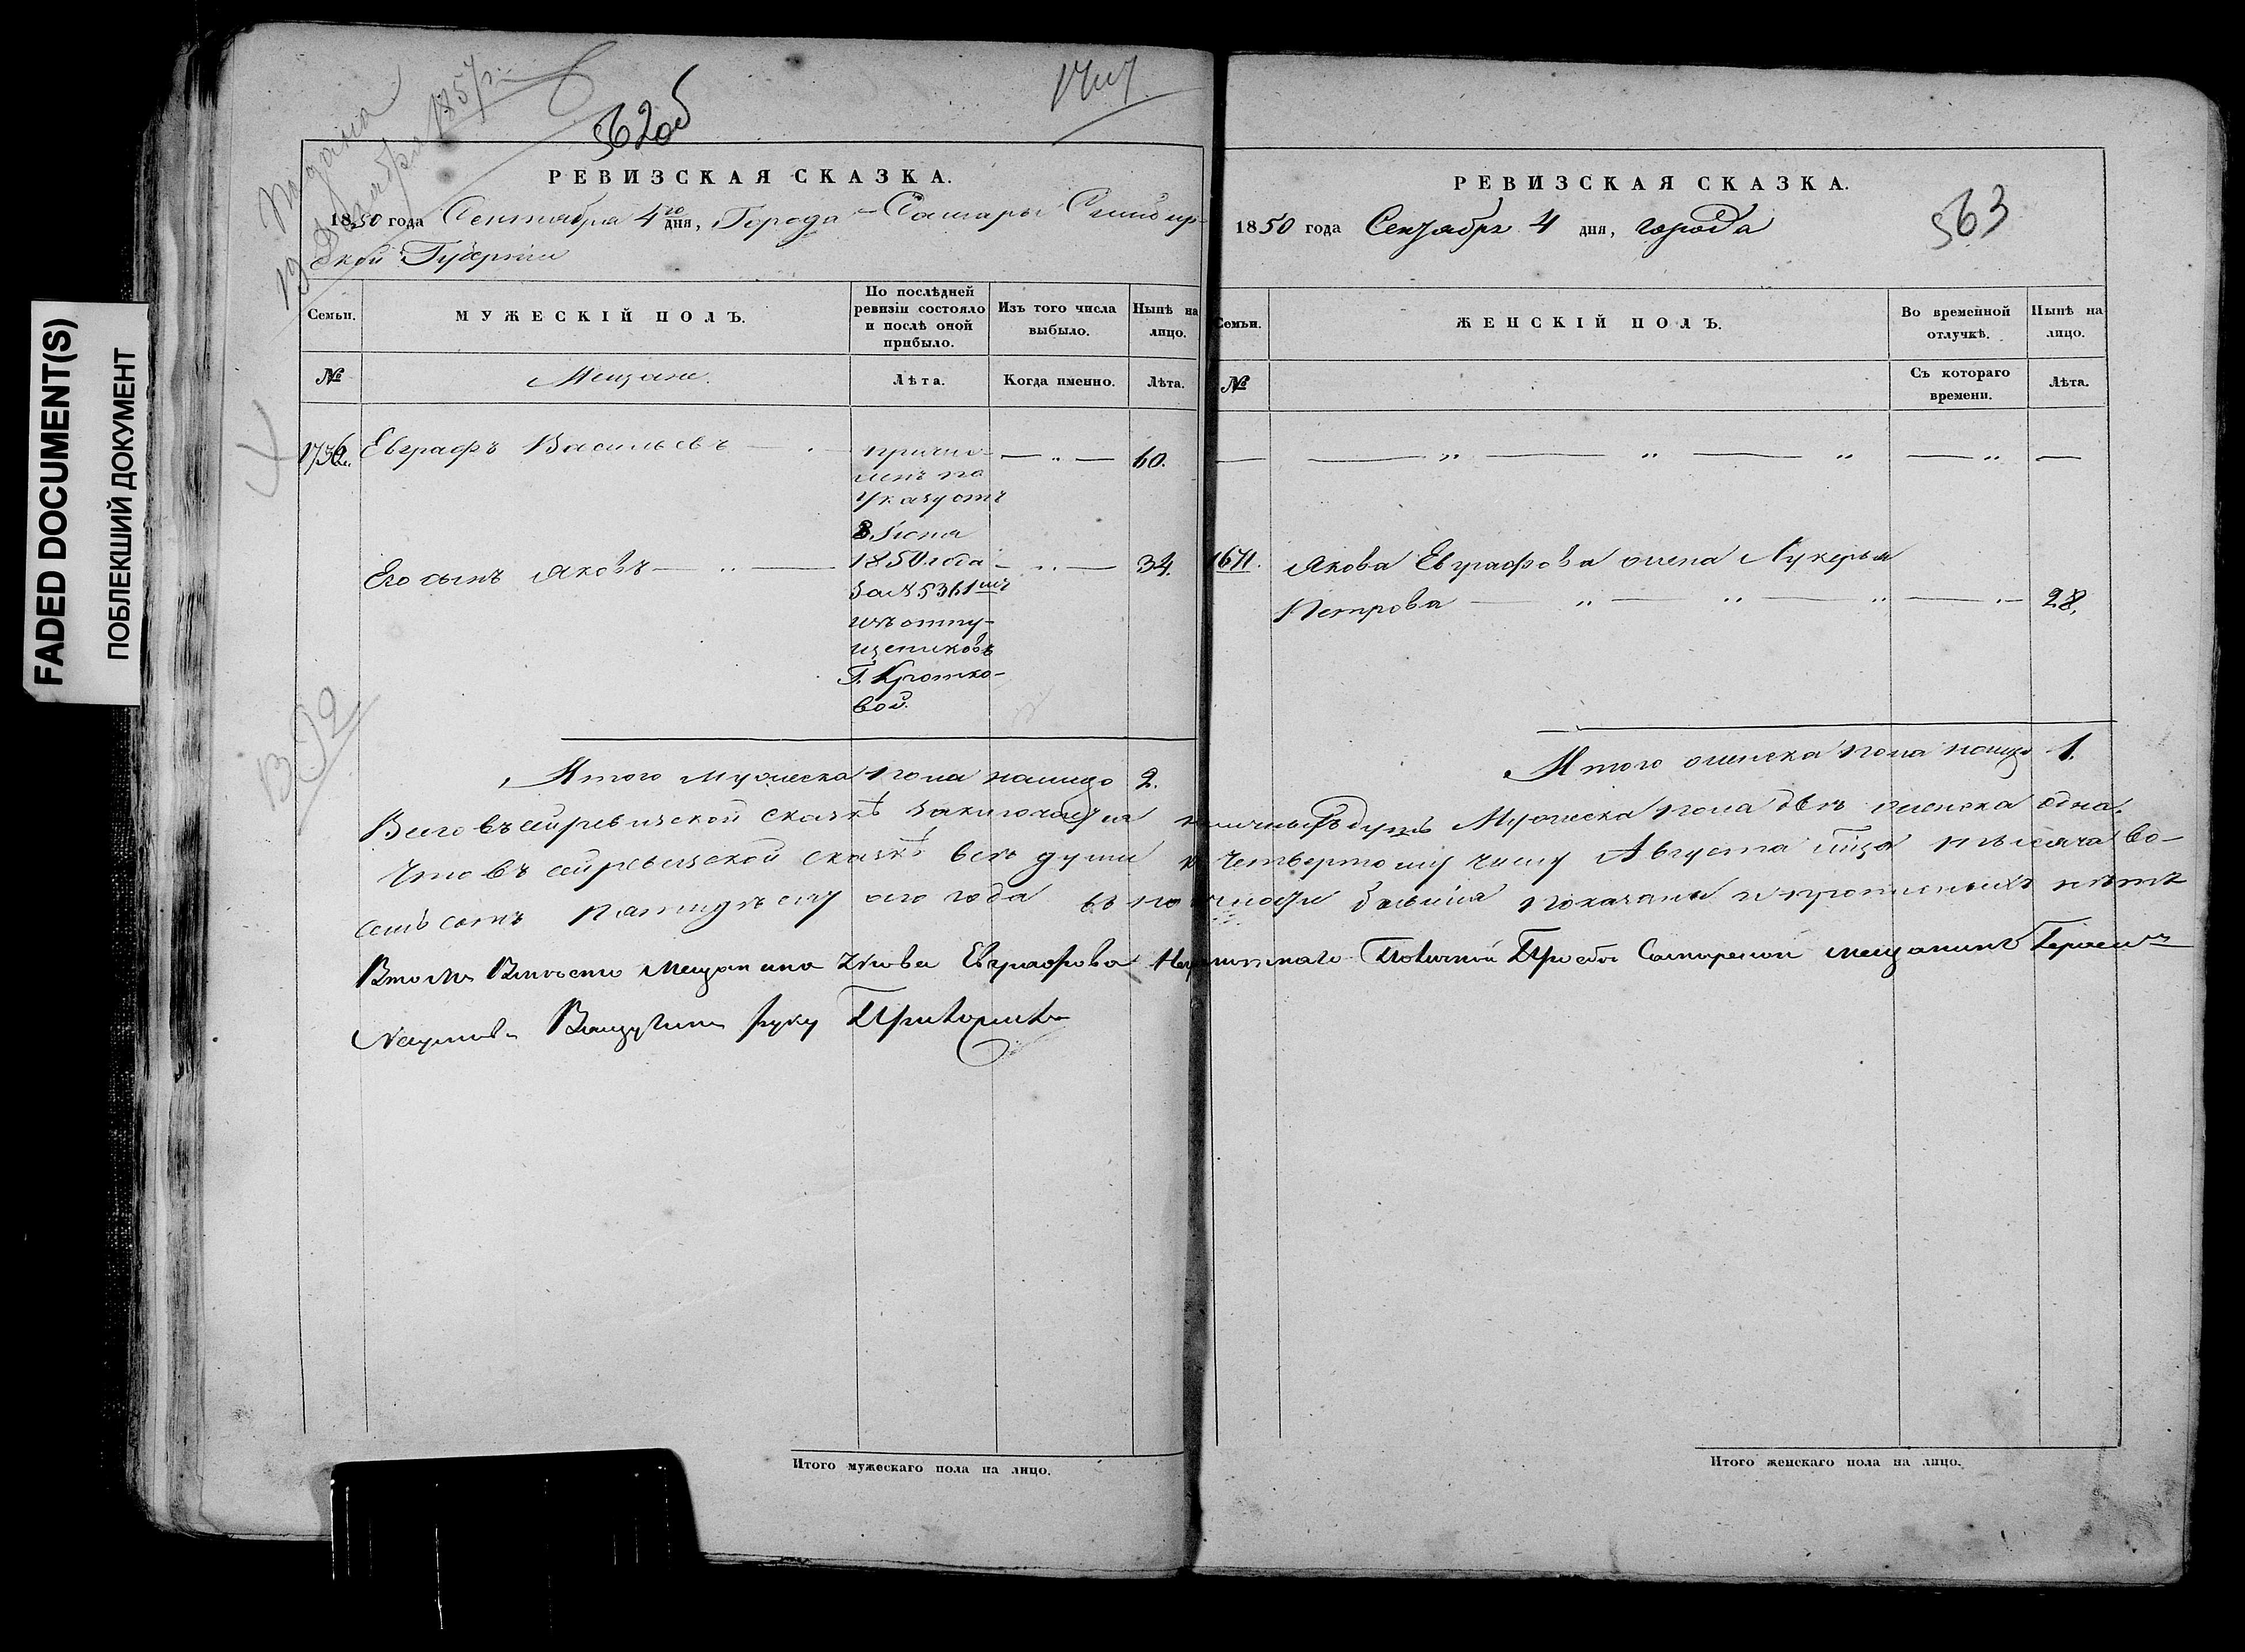 FADED DOCUMENT(S)
ПОБЛЕКШИЙ ДОКУМЕНТ
Подана
19 Декабря 1857 г.
562об
РЕВИЗСКАЯ СКАЗКА.
1850 года Сентября 4го дня, Города Самары Симбир-
ской Губернии
Семьи.
МУЖЕСКІЙ ПОЛЪ.
По послѣдней ревизіи состояло и послѣ оной прибыло.
Изъ того числа выбыло.
Нынѣ на лицо.
№
Мещане.
Лѣта.
Когда именно.
Лѣта.
1756. Евграфъ Васильевъ
причи-
сленъ по
Указу отъ
8. Iюня
1850 года
за № 5361мъ
изъ отпу-
щениковъ
Г. Кротко-
вой.
60.
Его сынъ Яковъ 34.
Итого мужеска пола налицо 2.
РЕВИЗСКАЯ СКАЗКА.
563
1850 года Сентября 4 дня, города
Семьи.
ЖЕНСКІЙ ПОЛЪ.
Во временной отлучкѣ.
Нынѣ на лицо.
№
Съ котораго времени.
Лѣта.
1671. Якова Евграфова жена Лукерья
Петрова 28.
Итого женска пола налицо 1.
Всего въ сей ревизской сказкѣ заключается наличныхъ душъ Мужеска пола двѣ женска одна.
Что въ сей ревизской сказкѣ всѣ души къ четвертому числу Августа тысяча во-
семь сотъ пятидесятого года въ наличности бывшія показаны и прописныхъ нѣтъ
Вмѣсто мещанина Якова Евграфова Неграмотнаго Поличной Прозбѣ Самарской мещанинъ
руку Приложилъ
Итого мужескаго пола на лицо.
Итого женскаго пола на лицо.